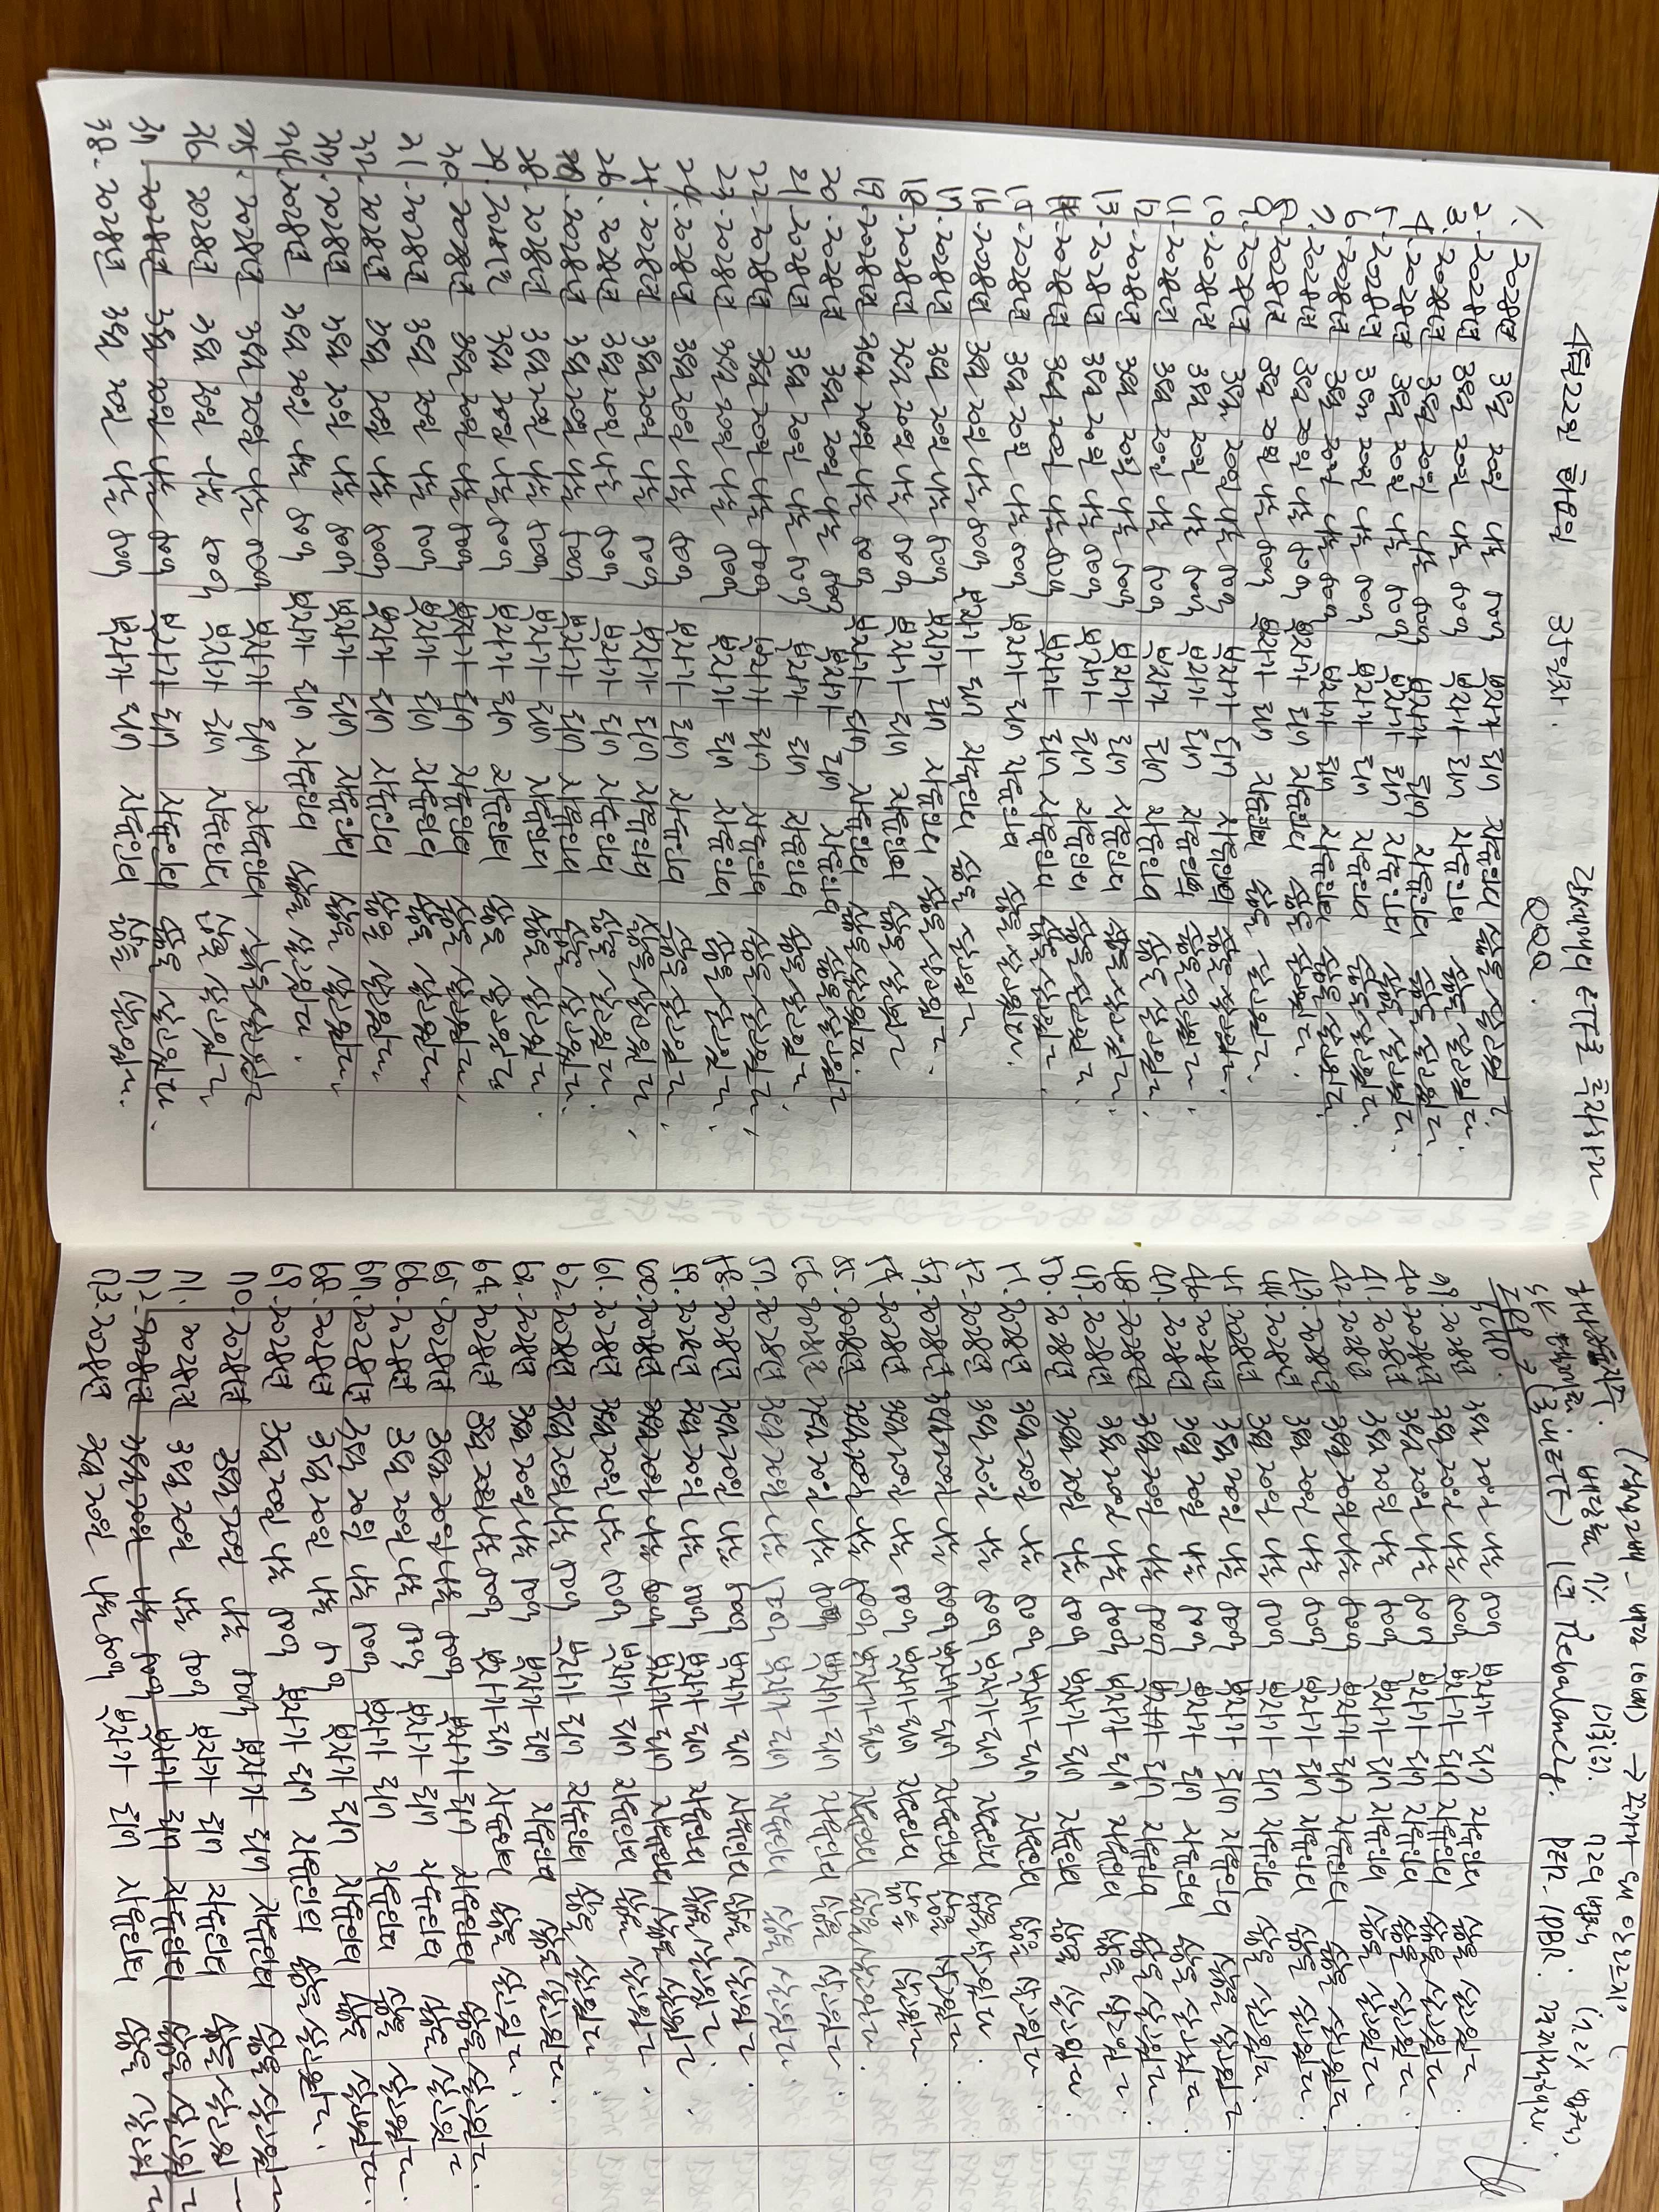 4월 22일 화요일 3일차.
QQQ.
1. 2028년 3월 20일 나는 500억 부자가 되어 자유인의 삶을 살고있다.
2. 2028년 3월 20일 나는 500억 부자가 되어 자유인의 삶을 살고있다.
3. 2028년 3월 20일 나는 500억 부자가 되어 자유인의 삶을 살고있다.
4. 2028년 3월 20일 나는 500억 부자가 되어 자유인의 삶을 살고있다.
5. 2028년 3월 20일 나는 500억 부자가 되어 자유인의 삶을 살고있다.
6. 2028년 3월 20일 나는 500억 부자가 되어 자유인의 삶을 살고있다.
7. 2028년 3월 20일 나는 500억 부자가 되어 자유인의 삶을 살고있다.
8. 2028년 3월 20일 나는 500억 부자가 되어 자유인의 삶을 살고있다.
9. 2028년 3월 20일 나는 500억 부자가 되어 자유인의 삶을 살고있다.
10. 2028년 3월 20일 나는 500억 부자가 되어 자유인의 삶을 살고있다.
11. 2028년 3월 20일 나는 500억 부자가 되어 자유인의 삶을 살고있다.
12. 2028년 3월 20일 나는 500억 부자가 되어 자유인의 삶을 살고있다.
13. 2028년 3월 20일 나는 500억 부자가 되어 자유인의 삶을 살고있다.
14. 2028년 3월 20일 나는 500억 부자가 되어 자유인의 삶을 살고있다.
15. 2028년 3월 20일 나는 500억 부자가 되어 자유인의 삶을 살고있다.
16. 2028년 3월 20일 나는 500억 부자가 되어 자유인의 삶을 살고있다.
17. 2028년 3월 20일 나는 500억 부자가 되어 자유인의 삶을 살고있다.
18. 2028년 3월 20일 나는 500억 부자가 되어 자유인의 삶을 살고있다.
19. 2028년 3월 20일 나는 500억 부자가 되어 자유인의 삶을 살고있다.
20. 2028년 3월 20일 나는 500억 부자가 되어 자유인의 삶을 살고있다.
21. 2028년 3월 20일 나는 500억 부자가 되어 자유인의 삶을 살고있다.
22. 2028년 3월 20일 나는 500억 부자가 되어 자유인의 삶을 살고있다.
23. 2028년 3월 20일 나는 500억 부자가 되어 자유인의 삶을 살고있다.
24. 2028년 3월 20일 나는 500억 부자가 되어 자유인의 삶을 살고있다.
25. 2028년 3월 20일 나는 500억 부자가 되어 자유인의 삶을 살고있다.
26. 2028년 3월 20일 나는 500억 부자가 되어 자유인의 삶을 살고있다.
27. 2028년 3월 20일 나는 500억 부자가 되어 자유인의 삶을 살고있다.
28. 2028년 3월 20일 나는 500억 부자가 되어 자유인의 삶을 살고있다.
29. 2028년 3월 20일 나는 500억 부자가 되어 자유인의 삶을 살고있다.
30. 2028년 3월 20일 나는 500억 부자가 되어 자유인의 삶을 살고있다.
31. 2028년 3월 20일 나는 500억 부자가 되어 자유인의 삶을 살고있다.
32. 2028년 3월 20일 나는 500억 부자가 되어 자유인의 삶을 살고있다.
33. 2028년 3월 20일 나는 500억 부자가 되어 자유인의 삶을 살고있다.
34. 2028년 3월 20일 나는 500억 부자가 되어 자유인의 삶을 살고있다.
35. 2028년 3월 20일 나는 500억 부자가 되어 자유인의 삶을 살고있다.
36. 2028년 3월 20일 나는 500억 부자가 되어 자유인의 삶을 살고있다.
37. 2028년 3월 20일 나는 500억 부자가 되어 자유인의 삶을 살고있다.
38. 2028년 3월 20일 나는 500억 부자가 되어 자유인의 삶을 살고있다.
배당률 1%
1년 Rebalancing. PER. PBR.
39. 2028년 3월 20일 나는 500억 부자가 되어 자유인의 삶을 살고있다.
40. 2028년 3월 20일 나는 500억 부자가 되어 자유인의 삶을 살고있다.
41. 2028년 3월 20일 나는 500억 부자가 되어 자유인의 삶을 살고있다.
42. 2028년 3월 20일 나는 500억 부자가 되어 자유인의 삶을 살고있다.
43. 2028년 3월 20일 나는 500억 부자가 되어 자유인의 삶을 살고있다.
44. 2028년 3월 20일 나는 500억 부자가 되어 자유인의 삶을 살고있다.
45. 2028년 3월 20일 나는 500억 부자가 되어 자유인의 삶을 살고있다.
46. 2028년 3월 20일 나는 500억 부자가 되어 자유인의 삶을 살고있다.
47. 2028년 3월 20일 나는 500억 부자가 되어 자유인의 삶을 살고있다.
48. 2028년 3월 20일 나는 500억 부자가 되어 자유인의 삶을 살고있다.
49. 2028년 3월 20일 나는 500억 부자가 되어 자유인의 삶을 살고있다.
50. 2028년 3월 20일 나는 500억 부자가 되어 자유인의 삶을 살고있다.
51. 2028년 3월 20일 나는 500억 부자가 되어 자유인의 삶을 살고있다.
52. 2028년 3월 20일 나는 500억 부자가 되어 자유인의 삶을 살고있다.
53. 2028년 3월 20일 나는 500억 부자가 되어 자유인의 삶을 살고있다.
54. 2028년 3월 20일 나는 500억 부자가 되어 자유인의 삶을 살고있다.
55. 2028년 3월 20일 나는 500억 부자가 되어 자유인의 삶을 살고있다.
56. 2028년 3월 20일 나는 500억 부자가 되어 자유인의 삶을 살고있다.
57. 2028년 3월 20일 나는 500억 부자가 되어 자유인의 삶을 살고있다.
58. 2028년 3월 20일 나는 500억 부자가 되어 자유인의 삶을 살고있다.
59. 2028년 3월 20일 나는 500억 부자가 되어 자유인의 삶을 살고있다.
60. 2028년 3월 20일 나는 500억 부자가 되어 자유인의 삶을 살고있다.
61. 2028년 3월 20일 나는 500억 부자가 되어 자유인의 삶을 살고있다.
62. 2028년 3월 20일 나는 500억 부자가 되어 자유인의 삶을 살고있다.
63. 2028년 3월 20일 나는 500억 부자가 되어 자유인의 삶을 살고있다.
64. 2028년 3월 20일 나는 500억 부자가 되어 자유인의 삶을 살고있다.
65. 2028년 3월 20일 나는 500억 부자가 되어 자유인의 삶을 살고있다.
66. 2028년 3월 20일 나는 500억 부자가 되어 자유인의 삶을 살고있다.
67. 2028년 3월 20일 나는 500억 부자가 되어 자유인의 삶을 살고있다.
68. 2028년 3월 20일 나는 500억 부자가 되어 자유인의 삶을 살고있다.
69. 2028년 3월 20일 나는 500억 부자가 되어 자유인의 삶을 살고있다.
70. 2028년 3월 20일 나는 500억 부자가 되어 자유인의 삶을 살고있다.
71. 2028년 3월 20일 나는 500억 부자가 되어 자유인의 삶을 살고있다.
72. 2028년 3월 20일 나는 500억 부자가 되어 자유인의 삶을 살고있다.
73. 2028년 3월 20일 나는 500억 부자가 되어 자유인의 삶을 살고있다.